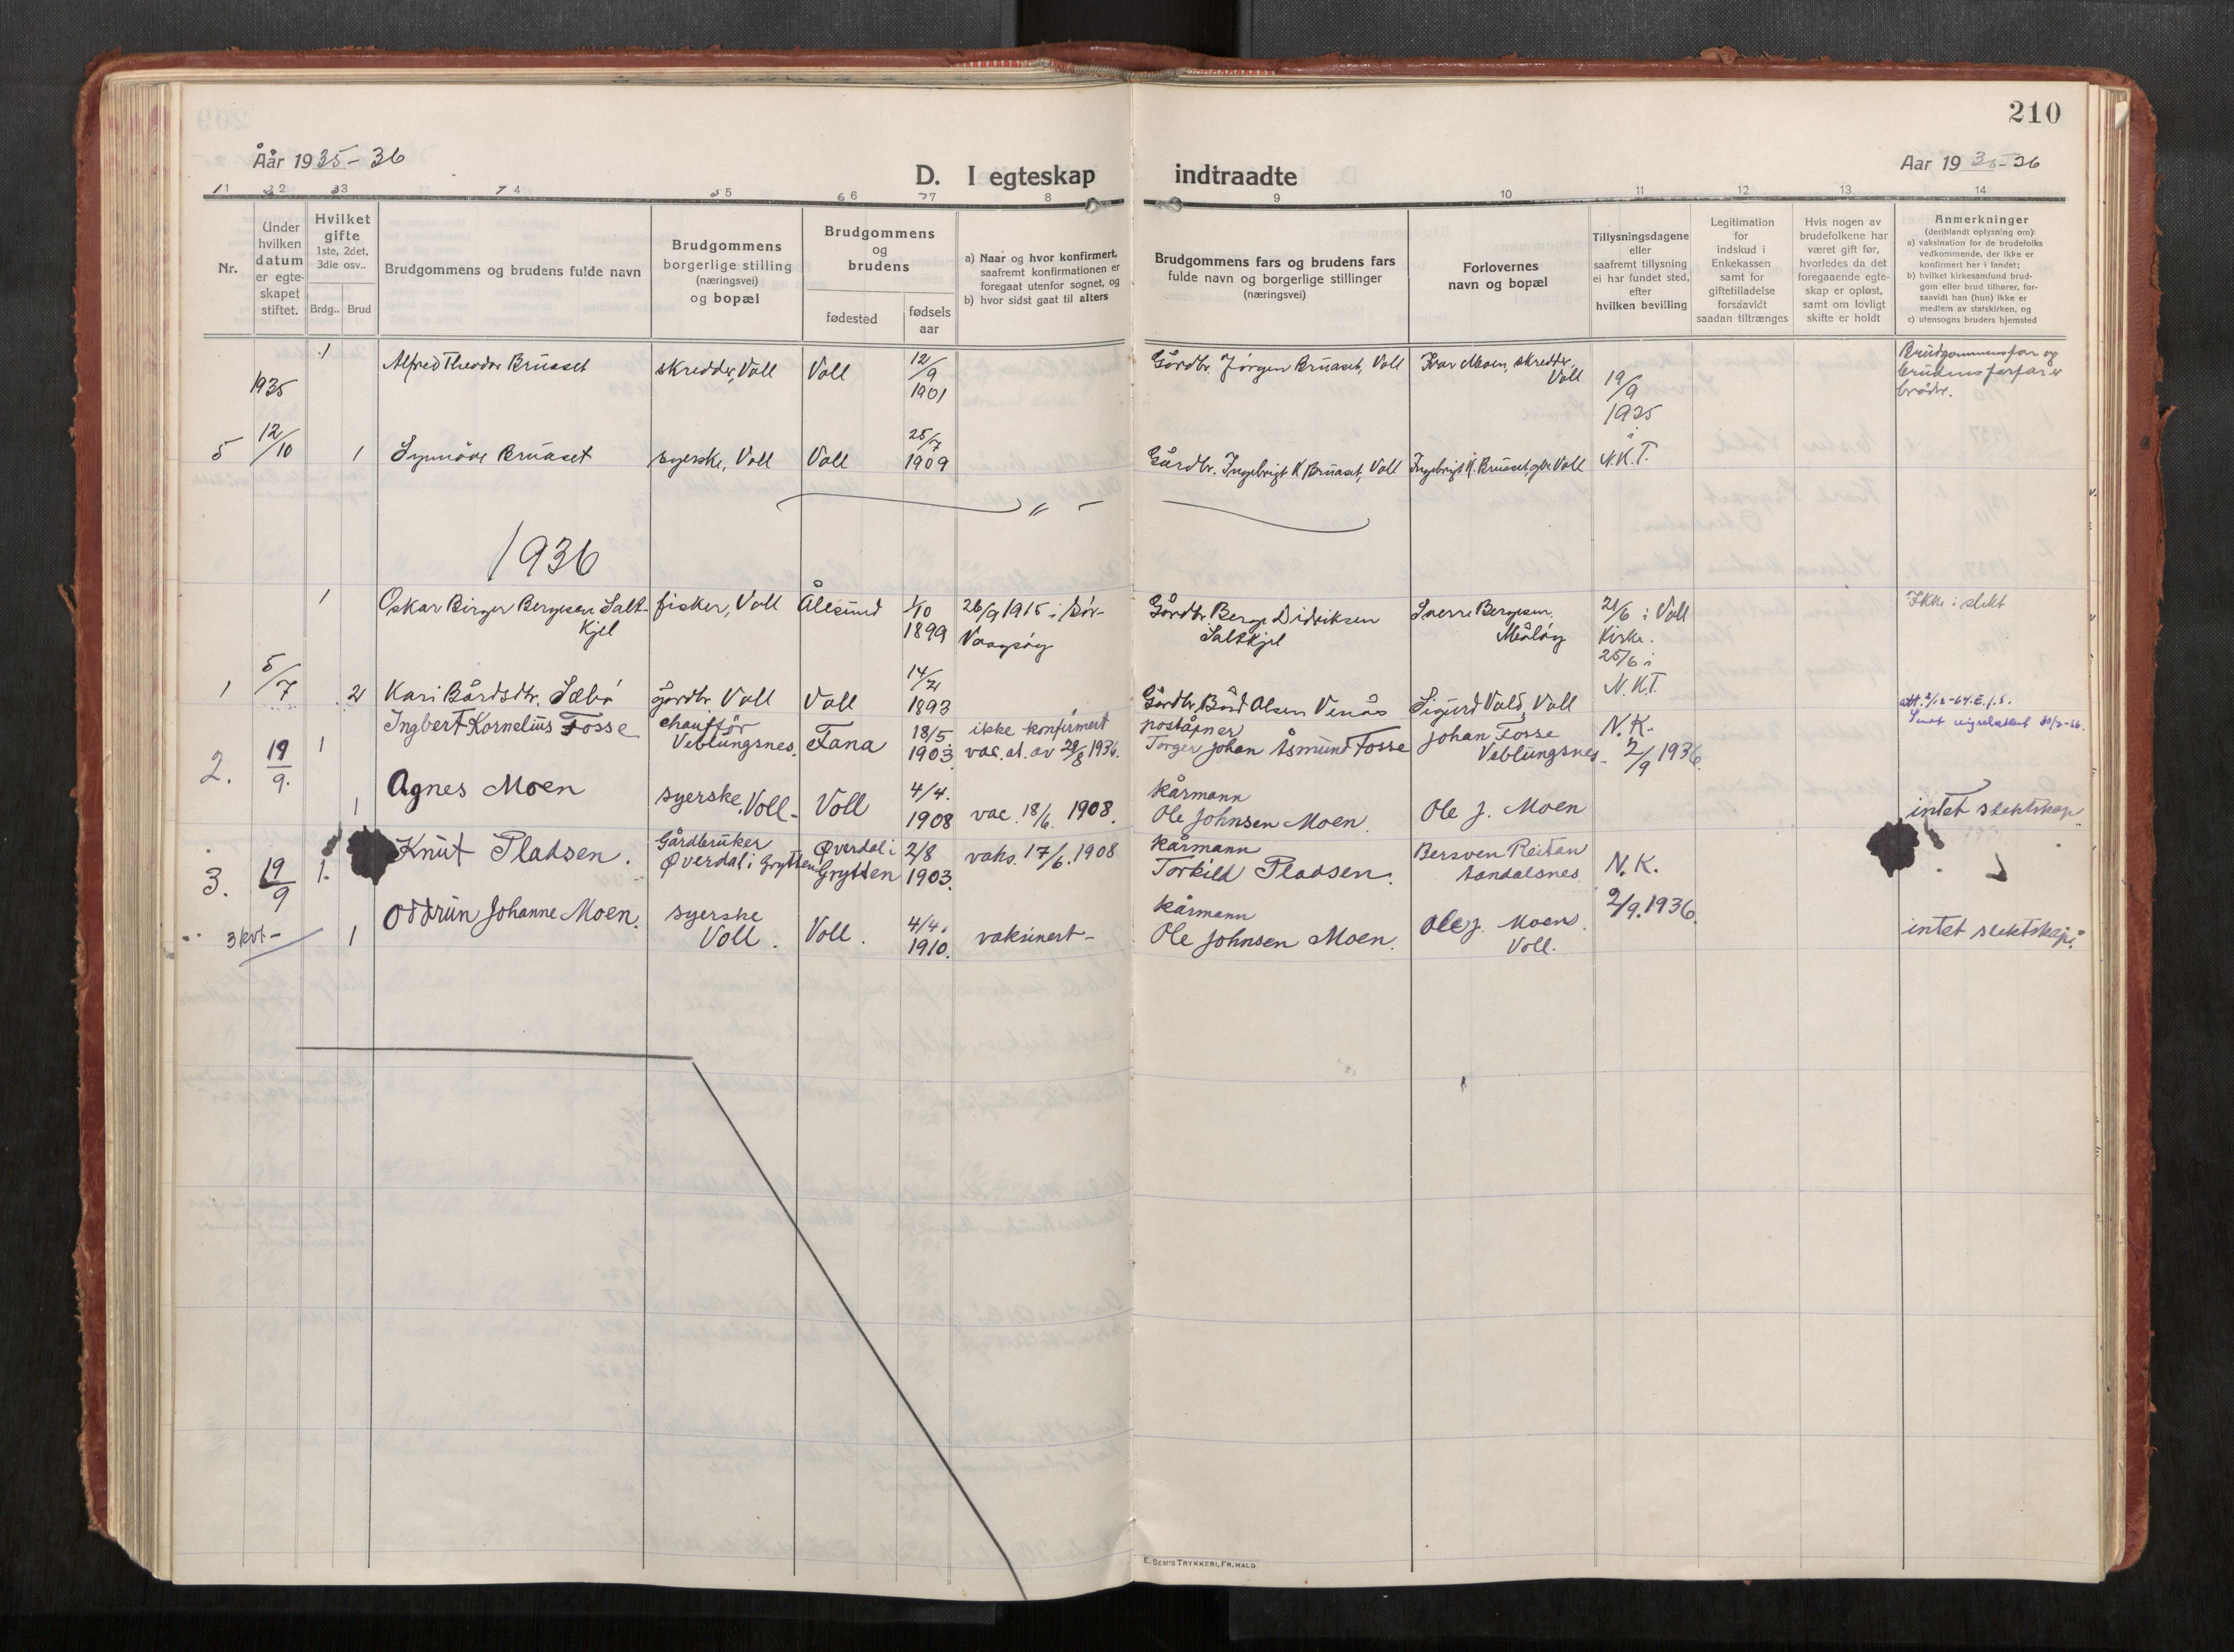 210
Åår 1935-36
D. I egteskap indtraadte
Aar 1935-36
1 2 3 4 5 6 7 8 9 10 11 12 13 14
Nr.
Under
hvilken
datum
er egte-
skapet
stiftet.
Hvilket
gifte
1ste, 2det,
3die osv..
Brdg.. Brud
Brudgommens og brudens fulde navn
Brudgommens
borgerlige stilling
(næringsvei)
og bopæl
Brudgommens
og
brudens
fødested
fødsels
aar
a) Naar og hvor konfirmert,
saafremt konfirmationen er
foregaat utenfor sognet, og
b) hvor sidst gaat til alters
Brudgommens fars og brudens fars
fulde navn og borgerlige stillinger
(næringsvei)
Forlovernes
navn og bopæl
Tillysningsdagene
eller
saafremt tillysning
ei har fundet sted,
efter
hvilken bevilling
Legitimation
for
indskud i
Enkekassen
samt for
giftetilladelse
forsaavidt
saadan tiltrænges
Hvis nogen av
brudefolkene har
været gift før,
hvorledes da det
foregaaende egte-
skap er opløst,
samt om lovligt
skifte er holdt
Anmerkninger
(deriblandt oplysning om):
a) vaksination for de brudefolks
vedkommende, der ikke er
konfirmert her i landet;
b) hvilket kirkesamfund brud-
gom eller brud tilhører, for-
saavidt han (hun) ikke er
medlem av statskirken, og
c) utensogns bruders hjemsted
1935
1 Alfred Theodor Bruaset skredder, Voll Voll 12/9 1901 Gårdbr. Jørgen Bruaset, Voll Ivar Moen, skredder, Voll
19/9 1935 i N.K.T.
Brudgommens far og
brudens farfar er
brødre.
5 12/10 1 Synnøve Bruaset syerske, Voll Voll 25/7 1909 Gårdbr. Ingebrigt K Bruaset, Voll Ingebrigt K. Bruaset, gbr. Voll
1936
1 Oskar Birger Bergesen Salt-
kjel
fisker, Voll Ålesund 1/10 1899
26/9 1915 i Sør-
Vaagsøy
Gårdbr. Berge Didriksen
Saltkjel
Sverre Bergesen,
Måløy
21/6 i Voll
Kirke.
25/6 i
N.K.T.
Ikke i slekt
1 5/7 2 Kari Bårdsdtr. Sæbø gårdbr. Voll Voll 14/2 1893 Gårdbr. Bård Olsen Venås Sigurd Vold, Voll
2. 19/9. 1 Ingbert Kornelius Fosse
chauffør
Veblungsnes.
Fana 18/5 1903.
ikke konfirmert
vac. at. av 29/8 1936.
poståpner
Torger Johan Åsmund Fosse
Johan Fosse
Veblungsnes.
N.K.
2/9 1936.
1 Agnes Moen syerske, Voll Voll 4/4. 1908 vac. 18/6. 1908.
kårmann
Ole Johnsen Moen.
Ole J. Moen
intet slektskap
3. 19/9 1. Knut Pladsen.
Gårdbruker
Øverdal i Grytten
Øverdal i
Grytten
2/8 1903.
vaks. 17/6. 1908
kårmann
Torkild Pladsen.
Bersven Reitan
Aandalsnes
N.K.
2/9. 1936.
3 kvt. 1 Oddrun Johanne Moen.
syerske
Voll.
Voll. 4/4. 1910. vaksinert
kårmann
Ole Johnsen Moen.
Ole J. Moen.
Voll.
intet slektskap.
E. SEM'S TRYKKERI, FR.HALD